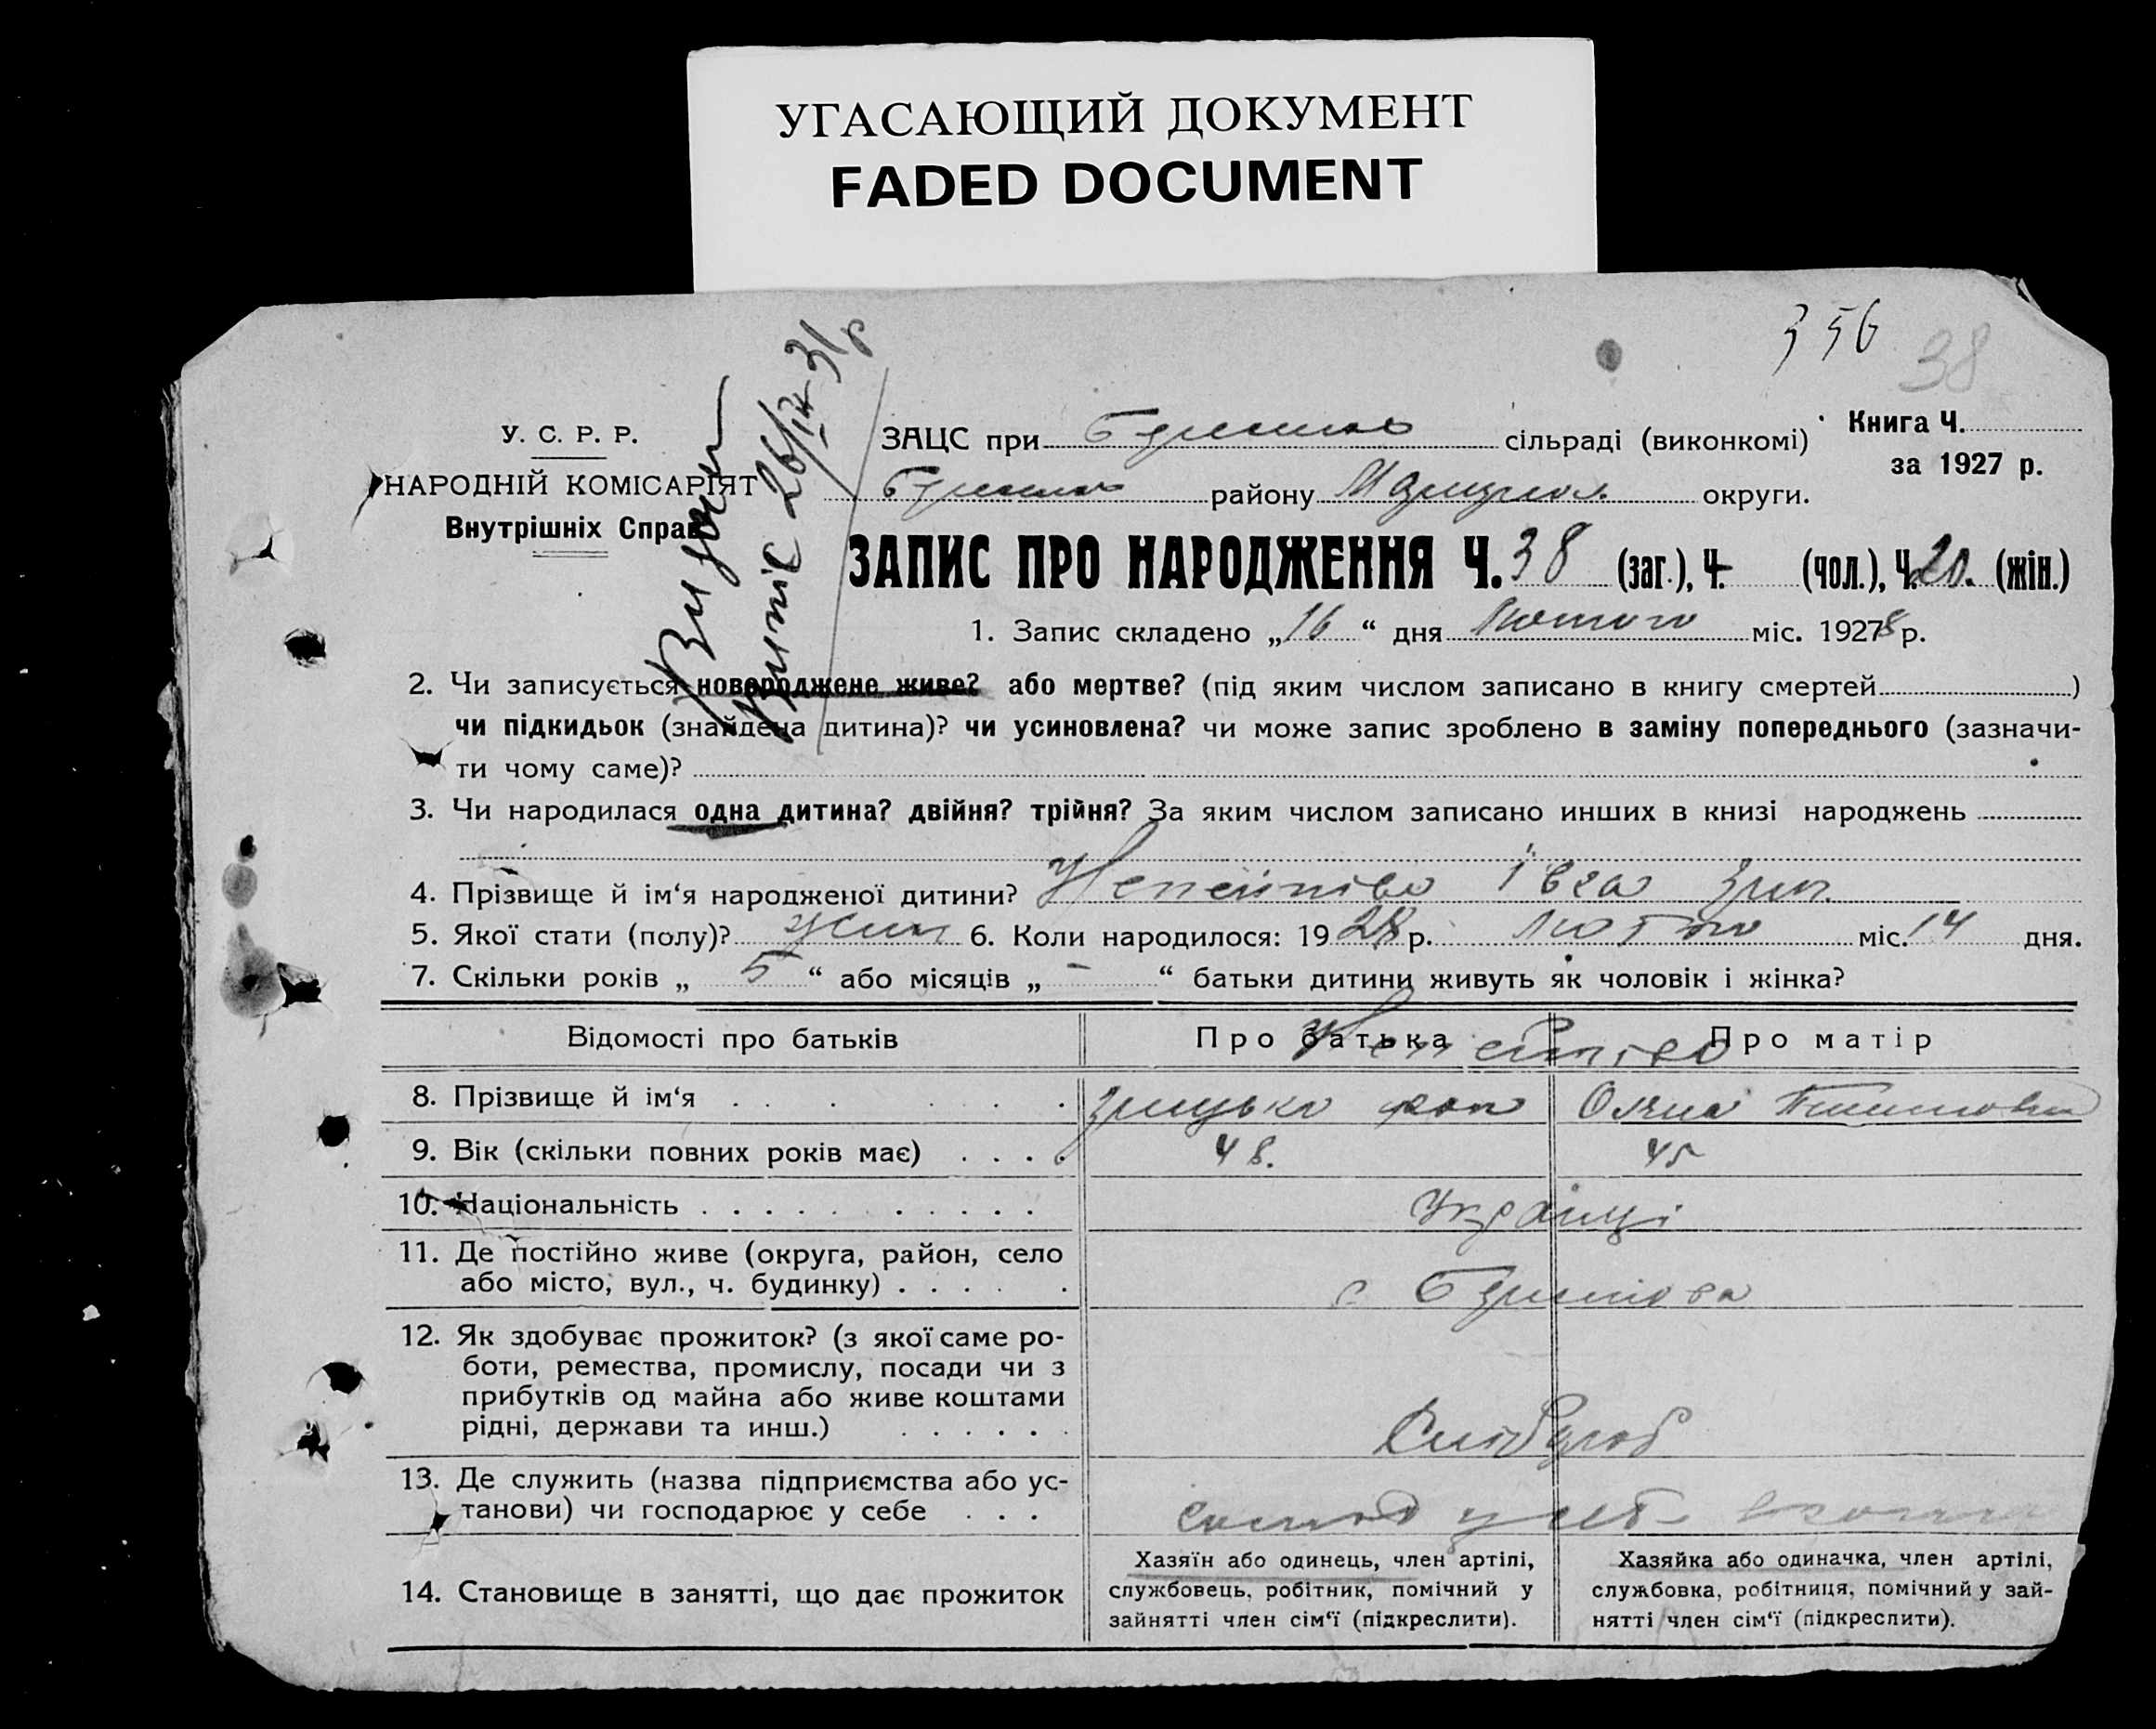 УГАСАЮЩИЙ ДОКУМЕНТ
FADED DOCUMENT
356
38
Видан
Витяг 26/IV 31 р
У. С. Р. Р.
НАРОДНІЙ КОМІСАРІЯТ
Внутрішніх Справ
ЗАЦС при сільраді (виконкомі)
району округи.
Книга Ч.
за 1927 р.
ЗАПИС ПРО НАРОДЖЕННЯ Ч. 38 (заг.), Ч. - (чол.), Ч. 20. (жін.)
1. Запис складено „16“ дня Лютого міс. 1928 р.
2. Чи записується новороджене живе? або мертве? (під яким числом записано в книгу смертей)
чи підкидьок (знайдена дитина)? чи усиновлена? чи може запис зроблено в заміну попереднього (зазначи-
ти чому саме)?
3. Чи народилася одна дитина? двійня? трійня? За яким числом записано инших в книзі народжень
4. Прізвище й ім‘я народженої дитини?
5. Якої стати (полу)? жин 6. Коли народилося: 1928 р. Лютого міс. 14 дня.
7. Скільки років „5“ або місяців „-“ батьки дитини живуть як чоловік і жінка?
Відомості про батьків Про батька Про матір
8. Прізвище й ім‘я Грицько
9. Вік (скільки повних років має) 48. 45
10. Національність Українці
11. Де постійно живе (округа, район, село
або місто, вул., ч. будинку) с
12. Як здобуває прожиток? (з якої саме ро-
боти, ремества, промислу, посади чи з
прибутків од майна або живе коштами
рідні, держави та инш.) Хлібороб
13. Де служить (назва підприємства або ус-
танови) чи господарює у себе
14. Становище в занятті, що дає прожиток
Хазяїн або одинець, член артілі,
службовець, робітник, помічний у
зайнятті член сім‘ї (підкреслити).
Хазяйка або одиначка, член артілі,
службовка, робітниця, помічний у зай-
нятті член сім‘ї (підкреслити).